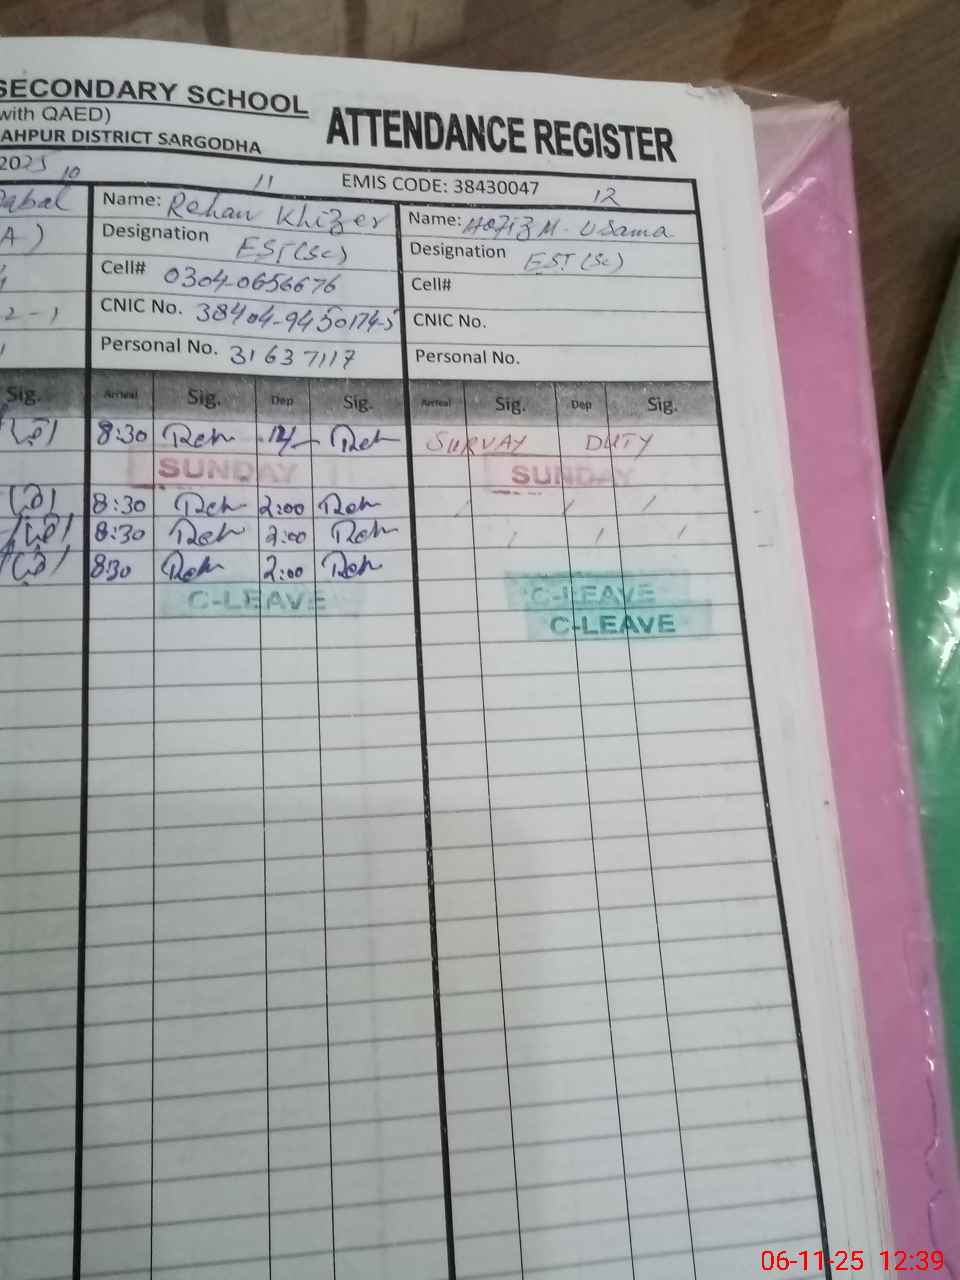 SECONDARY SCHOOL
with QAED)
AHPUR DISTRICT SARGODHA
ATTENDANCE REGISTER
2025
EMIS CODE: 38430047
10 11 12
Name: Rehan Khizer Name: Hafiz M. Usama
A) Designation EST (Sc) Designation EST (Sc)
Cell# 0304-0656676 Cell#
2-1 CNIC No. 38404-9450174-5 CNIC No.
Personal No. 31637117 Personal No.
Sig. Arrival Sig. Dep Sig. Arrival Sig. Dep Sig.
8:30 Reh Reh SURVAY DUTY
SUNDAY SUNDAY
8:30 Reh 2:00 Reh
8:30 Reh 2:00 Reh
8:30 Reh 2:00 Reh
C-LEAVE C-LEAVE
C-LEAVE
06-11-25 12:39